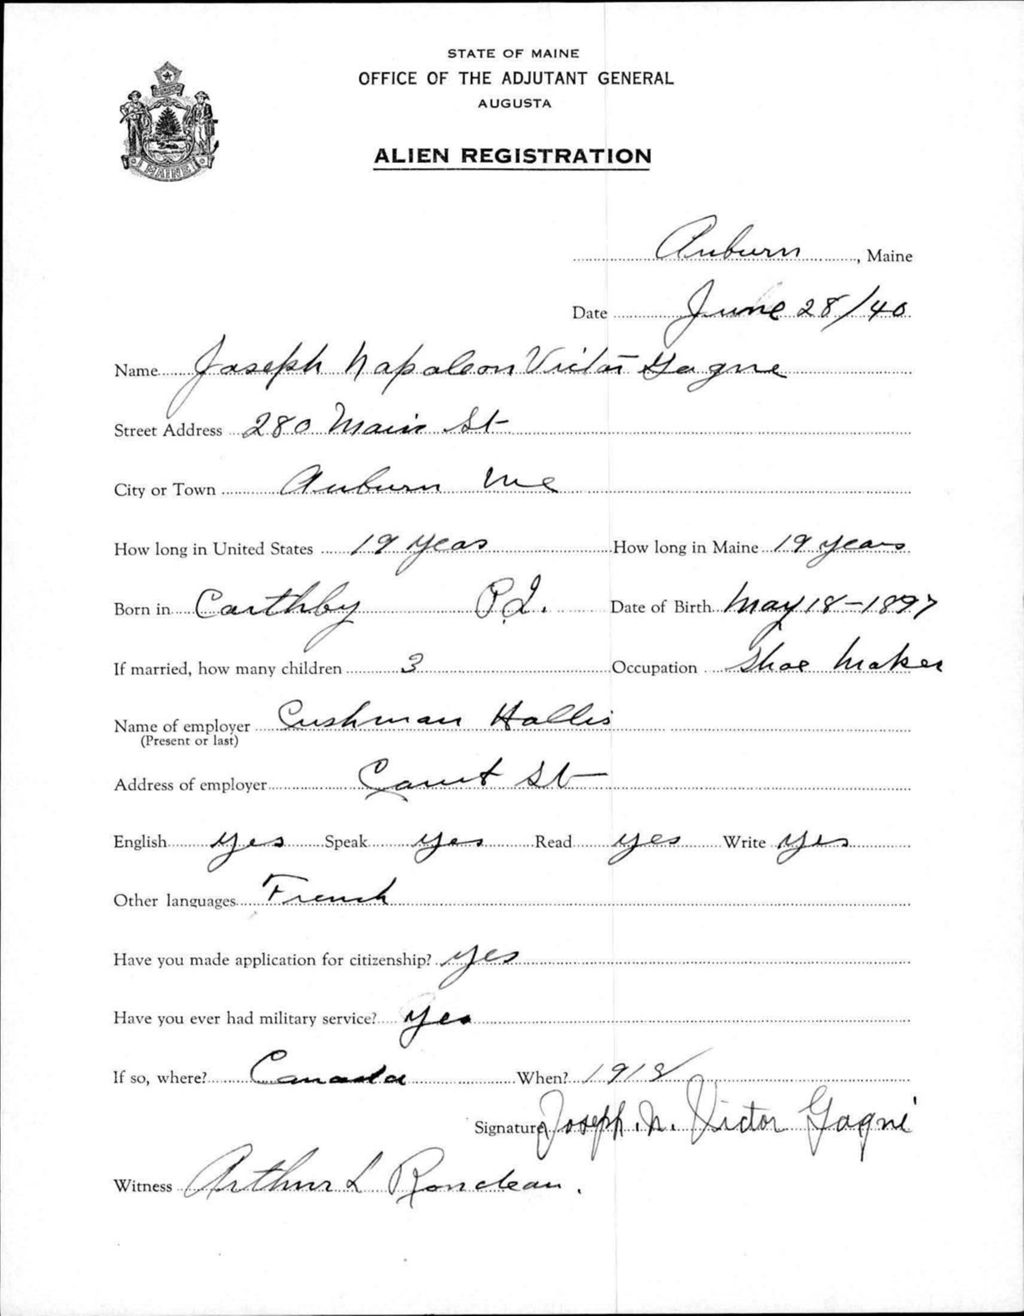 STATE OF MAINE
OFFICE OF THE ADJUTANT GENERAL
AUGUSTA
ALIEN REGISTRATION
MAINE
Auburn, Maine
Date June 28/40
Name Joseph Napoleon Victor Gagne
Street Address 280 Main St
City or Town Auburn Me
How long in United States 19 years How long in Maine 19 years
Born in Carthby P.Q. Date of Birth May 18-1897
If married, how many children 3 Occupation Shoe Maker
Name of employer Cushman Hollis
(Present or last)
Address of employer Court St
English yes Speak yes Read yes Write yes
Other languages French
Have you made application for citizenship? yes
Have you ever had military service? yes
If so, where? Canada When? 1918
Signature Joseph. N. Victor Gagné
Witness Arthur L Rondeau.